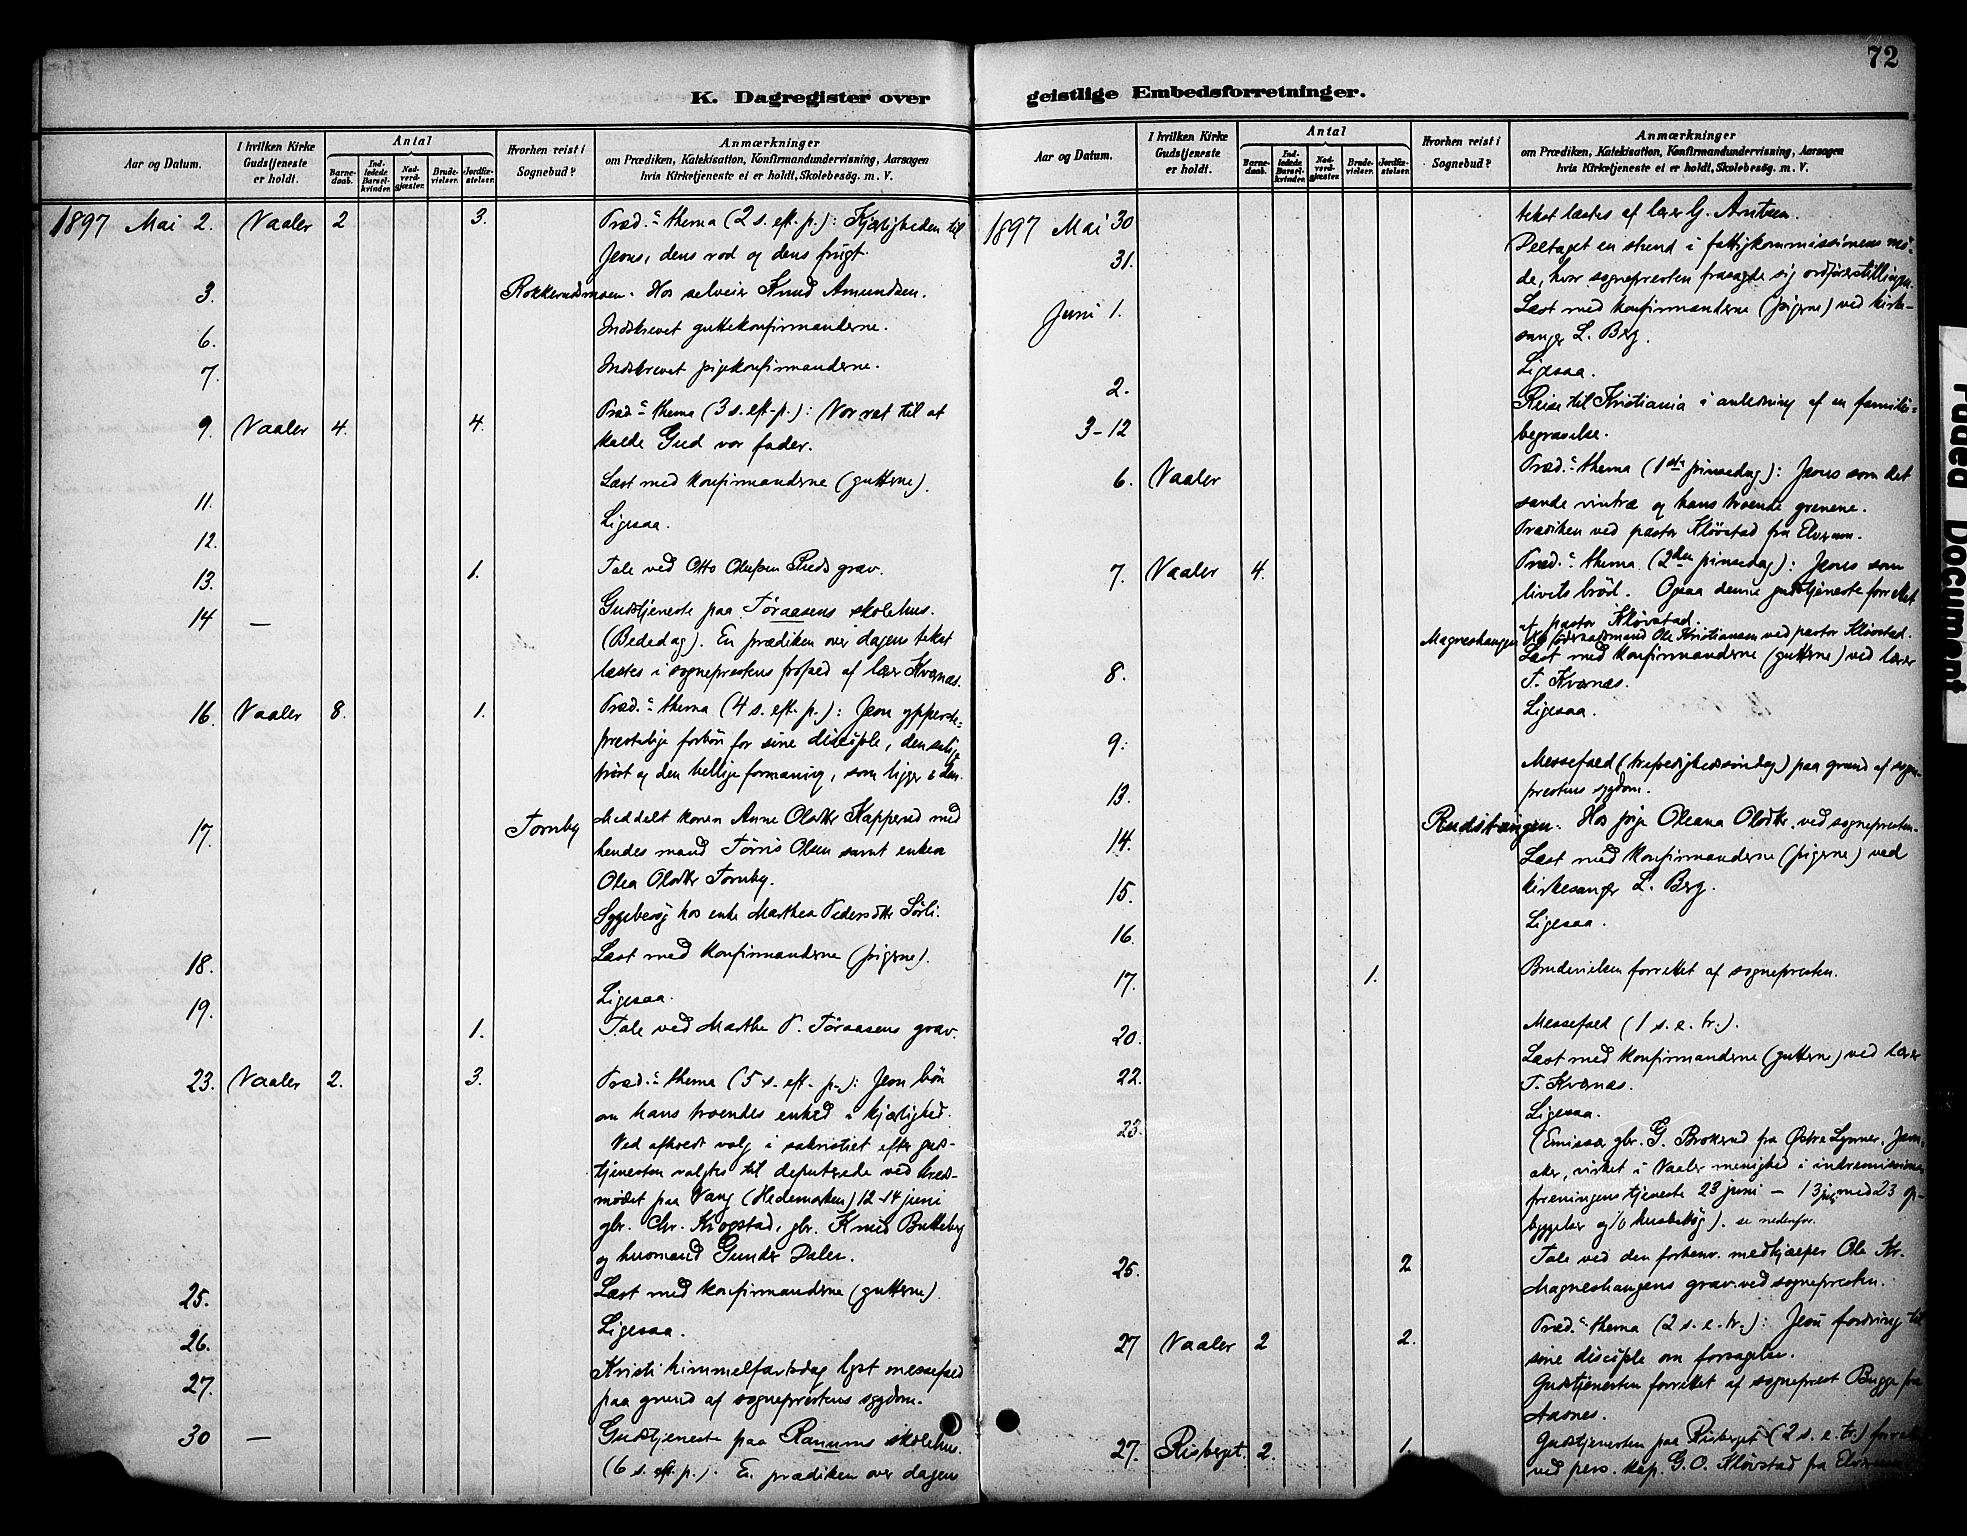 72
K. Dagregister over
Aar og Datum.
I hvilken Kirke Gudstjeneste er holdt.
Antal
Barne-daab.
Ind-ledede Barsel-kvinder.
Nad-verd-gjæster.
Brude-vielser.
Jordfæ-stelser.
Hvorhen reist i Sognebud?
Anmærkninger
om Prædiken, Katekisation, Konfirmandundervisning, Aarsagen
hvis Kirketjeneste ei er holdt, Skolebesög. m. V.
1897 Mai 2. Vaaler 2 3. Præd.s thema (2 s. eft. p.): Kjærligheden til
Jesus, dens rod og dens frugt.
3. Rokkerudsmoen. Hos selveier Knud Amundsen.
6. Indskrevet guttekonfirmanderne.
7. Indskrevet pigekonfirmanderne.
9. Vaaler 4. 4. Præd.s thema (3 s. eft. p.): Vor ret til at
kalde Gud vor fader.
11. Læst med konfirmanderne (gutterne).
12. Ligesaa.
13. 1. Tale ved Otto Olufsen Ruds grav.
14 — Gudstjeneste paa Töraasens skolehus.
(Bededag). En prædiken over dagens tekst
læstes i sogneprestens frafæd af lærer Kvernæs.
16. Vaaler 8. 1. Præd.s thema (4 s. eft. p.): Jesu ypperste-
prestelige forbön for sine disciple, den salige
tröst og den hellige formaning, som ligger i den.
17. Tornby Meddelt konen Anne Olsdtr Kapperud med
hendes mand Törris Olsen samt enken
Olea Olsdtr Tornby.
Sygebesög hos enke Marthea Pedersdtr Sörli.
18. Læst med konfirmanderne (pigerne).
19. Ligesaa.
1. Tale ved Marthe P. Töraasens grav.
23. Vaaler 2. 3. Præd.s thema (5 s. eft. p.): Jesu bön
om hans troendes enhed i kjærlighed.
Ved afholdt valg i sakristiet efter guds-
tjenesten valgtes til deputerede ved kreds-
mödet paa Vang (Hedemarken) 12-14 juni
gbr. Chr. Krogstad, gbr. Knud Butteberg
og husmand Gunder Dalen.
25. Læst med konfirmanderne (gutterne).
26. Ligesaa.
27. Kristi himmelfartsdag lyst messefald
paa grund af sogneprestens sygdom.
30 — Gudstjeneste paa Ranums skolehus.
(6 s. eft. p.). En prædiken over dagens
geistlige Embedsforretninger.
Aar og Datum.
I hvilken Kirke Gudstjeneste er holdt.
Antal
Barne-daab.
Ind-ledede Barsel-kvinder.
Nad-verd-gjæster.
Brude-vielser.
Jordfæ-stelser.
Hvorhen reist i Sognebud?
Anmærkninger
om Prædiken, Katekisation, Konfirmandundervisning, Aarsagen
hvis Kirketjeneste ei er holdt, Skolebesög. m. V.
1897 Mai 30 tekst læstes af lærer G. Arntsen.
31. Deltaget en stund i fattigkommissionens mö-
de, hvor sognepresten frasagde sig ordförerstillingen.
Juni 1. Læst med konfirmanderne (pigerne) ved kirke-
sanger L. Berg.
2. Ligesaa.
3-12 Reise til Kristiania i anledning af en familie-
begravelse.
6. Vaaler Præd.s thema (1ste pinsedag): Jesus som det
sande vintræ og hans troende grenene.
Prædiken ved pastor Klövstad fra Elverum.
7. Vaaler 4. Præd.s thema (2den pinsedag): Jesus som
livets bröd. Ogsaa denne gudstjeneste forrettet
af pastor Klövstad.
Magneshaugen Hos föderaadsmand Ole Kristiansen ved pastor Klövstad.
8. Læst med konfirmanderne (gutterne) ved lærer
T. Kvernæs.
9. Ligesaa.
13. Messefald (trefoldighedssöndag) paa grund af sogne-
prestens sygdom.
14. Rudstangen. Hos pige Oleana Olsdtr. ved sognepresten.
15. Læst med konfirmanderne (pigerne) ved
kirkesanger L. Berg.
16. Ligesaa.
17. 1. Brudevielsen forrettet af sognepresten.
20. Messefald (1 s. e. tr.).
22. Læst med konfirmanderne (gutterne) ved lærer
T. Kvernæs.
23. Ligesaa.
(Emissær gbr. G. Brokerud fra Östre Lynner, Jevn-
aker, virket i Vaaler menighed i indremissions-
foreningens tjeneste 23 juni — 13 juli med 23 op-
byggelser og husbesög). se nedenfor.
25. 2 Tale ved den forhenv. medhjælper Ole Kr.
Magneshaugens grav ved sognepresten.
27 Vaaler 2 2. Præd.s thema (2 s. e. tr.): Jesu fordring til
sine disciple om forsagelse.
Gudstjenesten forrettet af sogneprest Bugge fra
Aasnes.
27. Risberget. 2. 1. Gudstjenesten paa Risberget (2 s. e. tr.)
ved pers. kap. G. O. Klövstad fra Elverum.
Faded Document